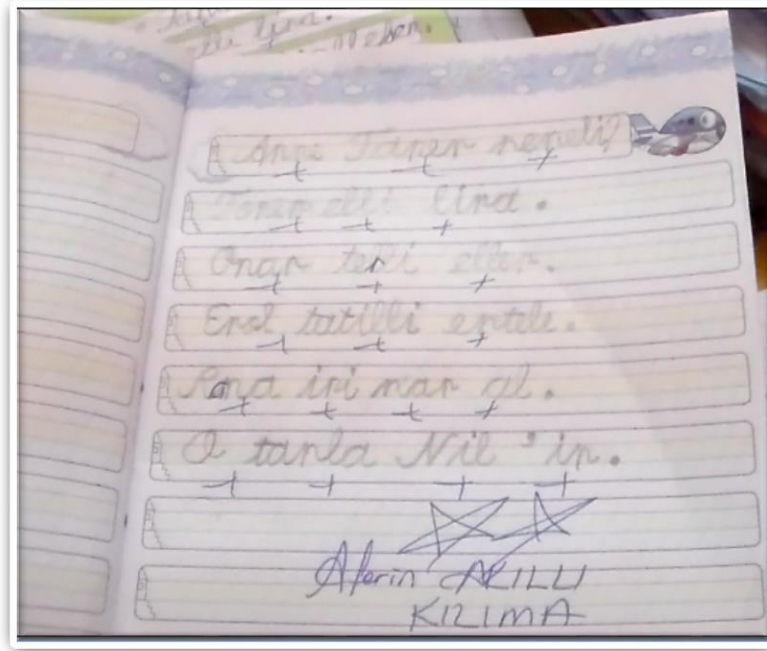 lira.
Anne Taner nereli?
Taner elli lira.
Onar telli eller.
Erol tatilli ertele.
Ona iri nar al.
O tarla Nil'in.
Aferin AKILLI
KIZIMA